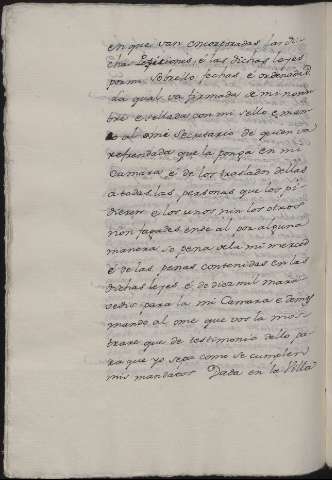 en que van encorporadas las di-
chas Petiziones, e las dichas leyes
por mi sobrello fechas, e ordenadas
la qual va firmada de mi nom-
bre e sellada con mi sello e man-
do al ome Secretario de quien va
refrendada que la ponga en mi
Camara e de los traslados dellas
a todas las personas que los pi-
dieren e los unos nin los otros
non fagades ende al por alguna
manera so pena de la mi merced
e de las penas contenidas en las
dichas leyes e de diez mil mara-
vedis para la mi Camara e demas
mando al ome que vos la mos-
trare que de testimonio dello pa-
ra que yo sepa como se cumplen
mis mandados Dada en la Villa